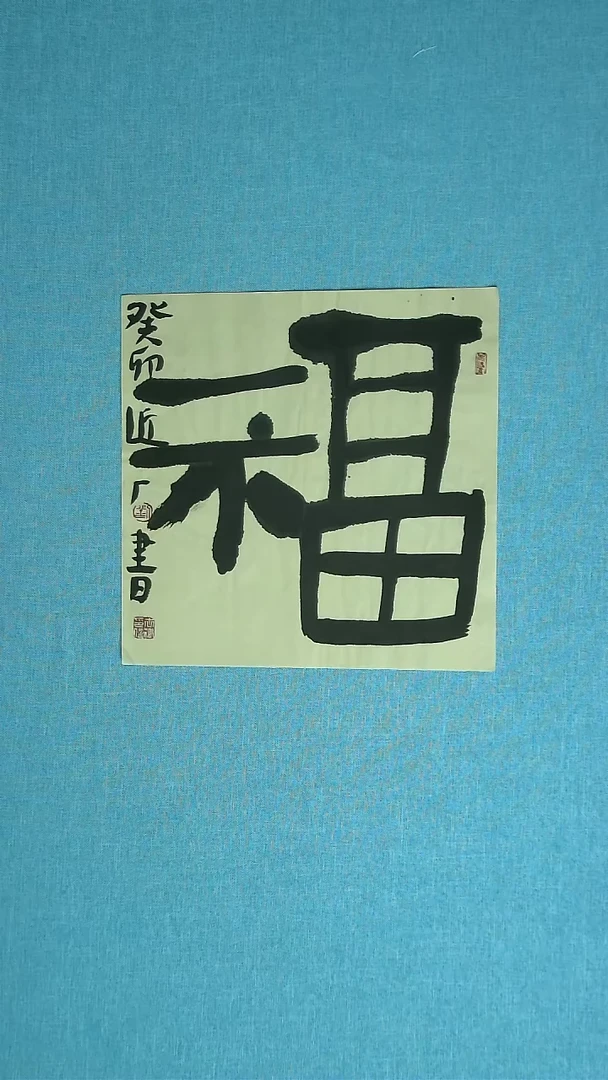 福
癸卯近厂書